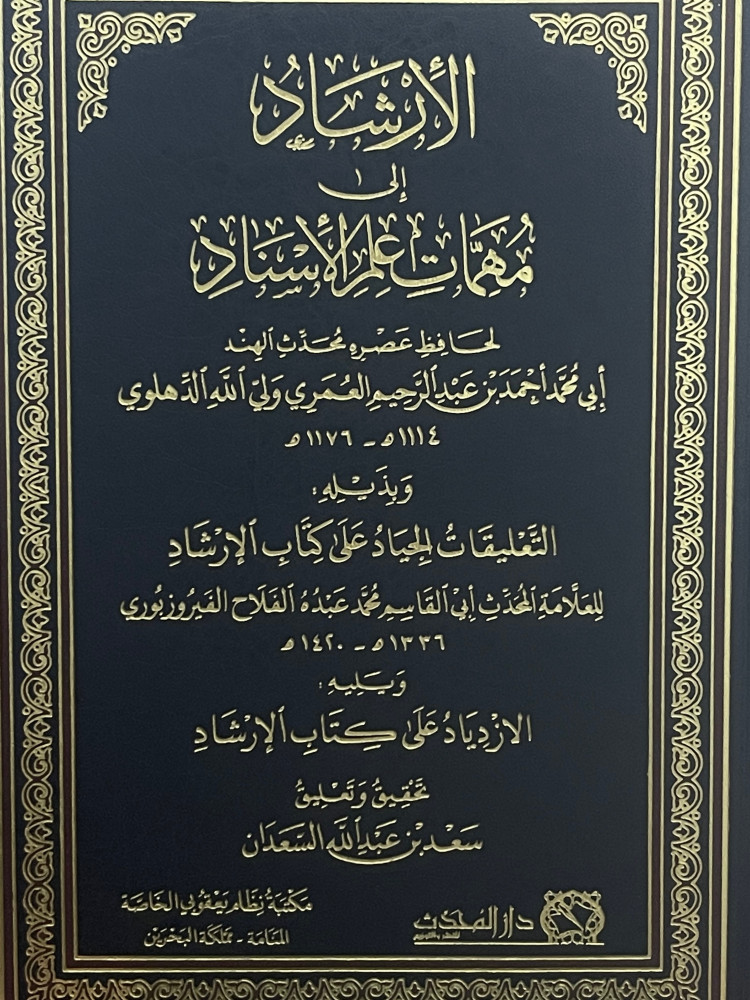 الأرشاد
إلى
مُهِمَّاتِ عِلمِ الأسْنَادِ
لحَافِظِ عَصْرِهِ مُحَدِّثِ الهِنْد
أَبِي مُحَمَّد أَحْمَدَ بْنِ عَبْدِ الرَّحِيمِ العُمَرِي وَلِيِّ اللَّهِ الدِّهلوي
١١١٤ھ - ١١٧٦ھ
وَبِذَيْلِهِ:
التَّعْلِيقَاتُ الجِيَادُ عَلَى كِتَابِ الإرْشَادِ
لِلعَلَّامَةِ المُحَدِّثِ أَبِي القَاسِمِ مُحَمَّد عَبْدُهُ الفَلَاح الفَيْرُوزبُورِي
١٣٣٦ھ - ١٤٢٠ھ
وَيَلِيهِ:
الازْدِيَادُ عَلَى كِتَابِ الإرْشَادِ
تَحْقِيقُ وَتَعْلِيقُ
سَعْد بْن عَبْدِ اللَّه السَّعْدَان
دار المحدث
للنشر والتوزيع
مَكتبَةُ نِظَام يَعْقُوبي الخَاصَّة
المَنَامَة - مَمْلَكَة البَحْرَيْن